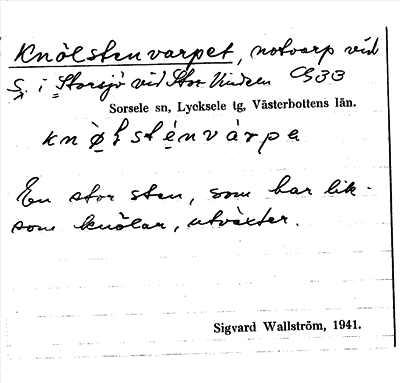 Knölstenvarpet, notvarp vid
S. i Storsjö vid Stor-Vindeln G33
Sorsele sn, Lycksele tg, Västerbottens län.
knø̜lsténvàrpa
En stor sten, som har lik-
som knölar, utväxter.
Sigvard Wallström, 1941.